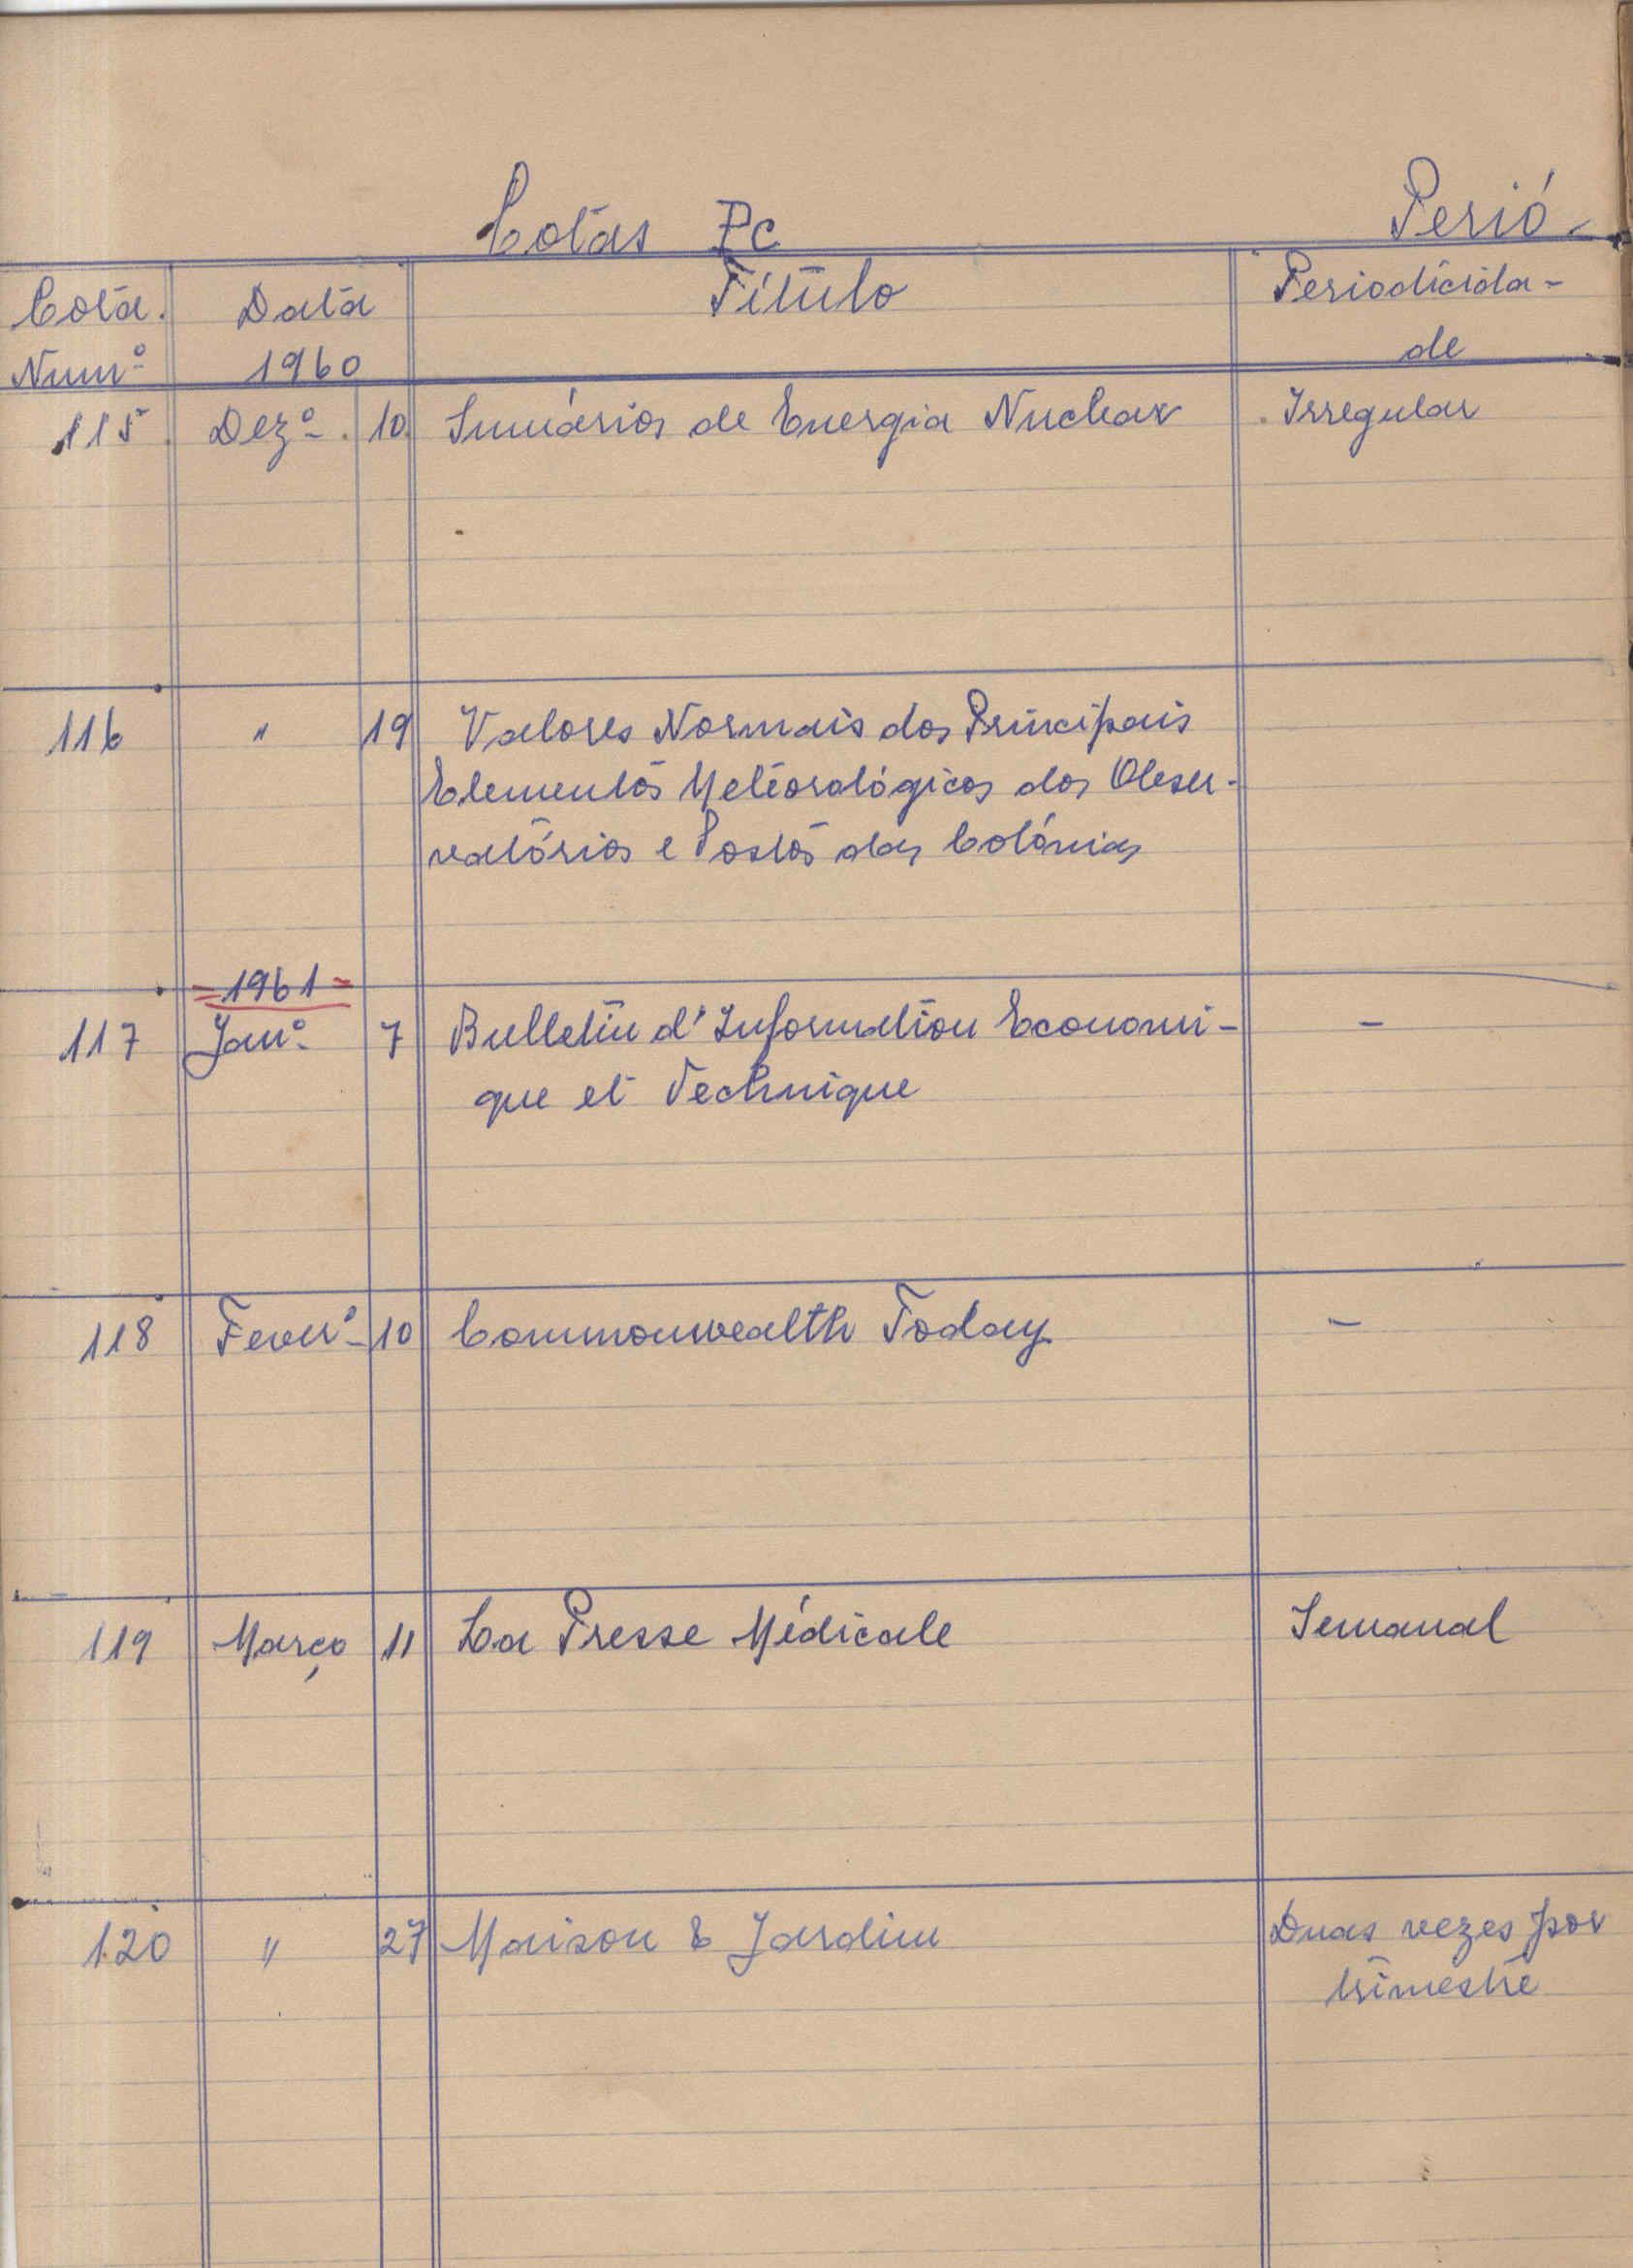 Cotas Pc Perió-
Cota Data Título Periodicida-
Numº 1960 de
115 Dezº 10 Sumários de Energia Nuclear Irregular
116 " 19 Valores Normais dos Principais
Elementos Meteorológicos dos Obser-
vatórios e Postos das Colónias
=1961=
117 Janº 7 Bulletin d'Information Economi- -
que et Technique
118 Feverº 10 Commonwealth Today -
119 Março 11 La Presse Médicale Semanal
120 " 27 Maison & Jardin Duas vezes por
trimestre